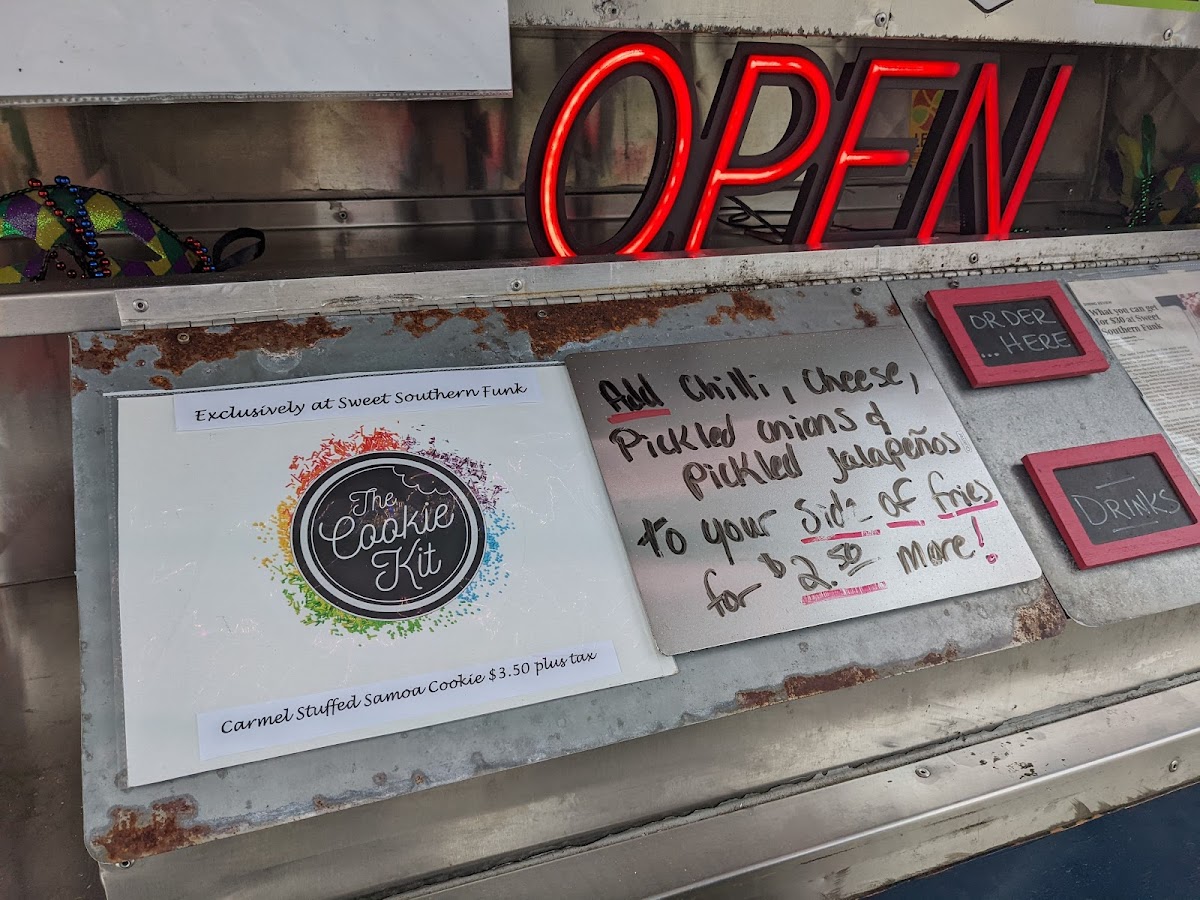 OPEN
Exclusively at Sweet Southern Funk
The
Cookie
Kit
Carmel Stuffed Samoa Cookie $3.50 plus tax
Add Chilli, Cheese,
Pickled onions &
Pickled Jalapeños
to your Side of fries
for $2.50 more!
ORDER
...HERE
DRINKS
What you can get
for $30 at Sweet
Southern Funk